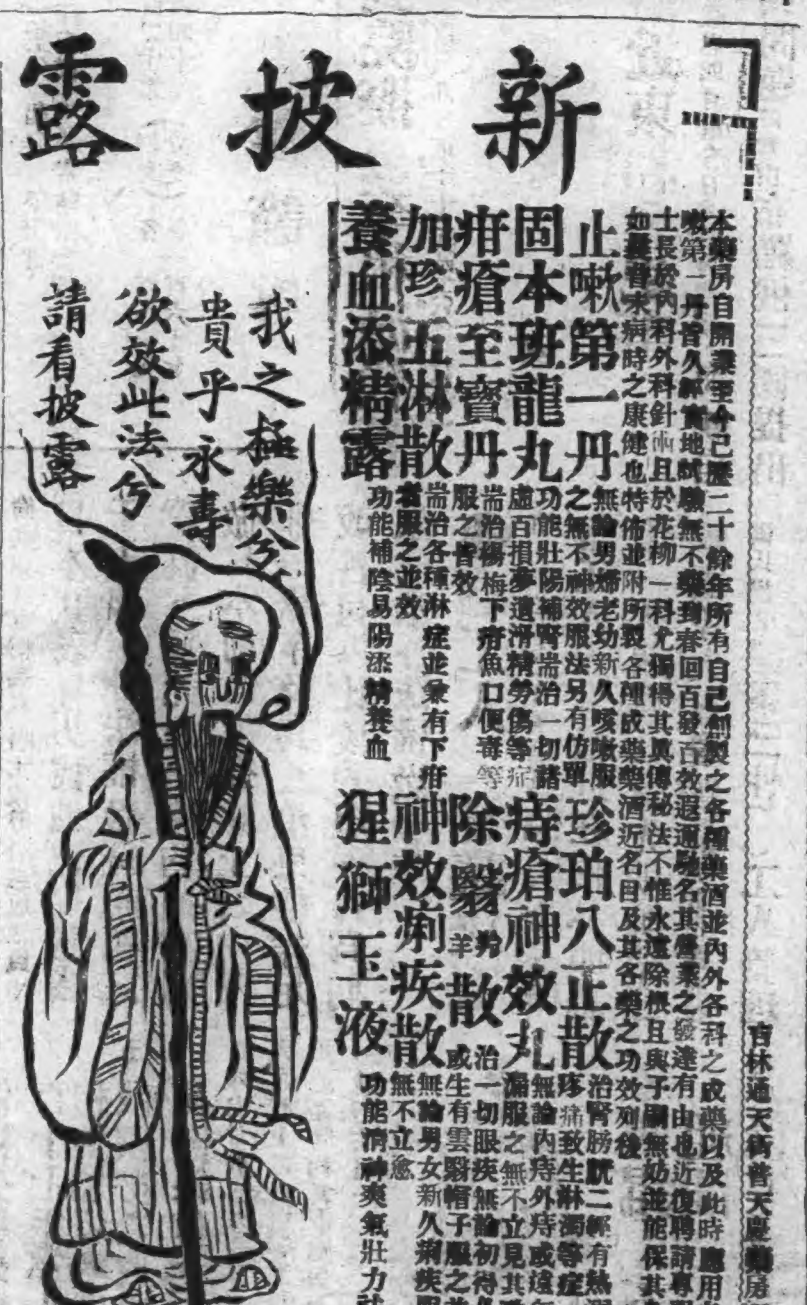 新披露
吉林通天街普天慶藥房
本藥房自開業至今已歷二十餘年所有自己創製之各種藥酒並內外各科之成藥以及此時應用
嗽第一丹皆久經實地試驗無不藥到春回百發百效遐邇馳名其營業之發達有由也近復聘請專
士長於內科外科針 且於花柳一科尤獨得其真傳秘法不惟永遠除根且與子嗣無妨並能保其
如 未病時之康健也特佈並附所製各種成藥藥酒近名目及其各藥之功效列後
止嗽第一丹
無論男婦老幼新久咳嗽服
之無不神效服法另有仿單
固本班龍丸
功能壯陽補腎耑治一切諸
虛百損夢遺滑精勞傷等症
疳瘡至寶丹
耑治楊梅下疳魚口便毒等
服之皆效
加珍五淋散
耑治各種淋症並兼有下疳
者服之並效
養血添精露
功能補陰易陽添精養血
珍珀八正散
治腎膀胱二經有熱
疼痛致生淋濁等症
痔瘡神效丸
無論內痔外痔或
漏服之無不立見其
除翳羚羊散
治一切眼疾無論初得
或生有雲翳帽子服之
神效痢疾散
無論男女新久痢疾服
無不立愈
猩獅玉液
功能清神爽氣壯力
我之極樂兮
貴乎永壽
欲效此法兮
請看披露